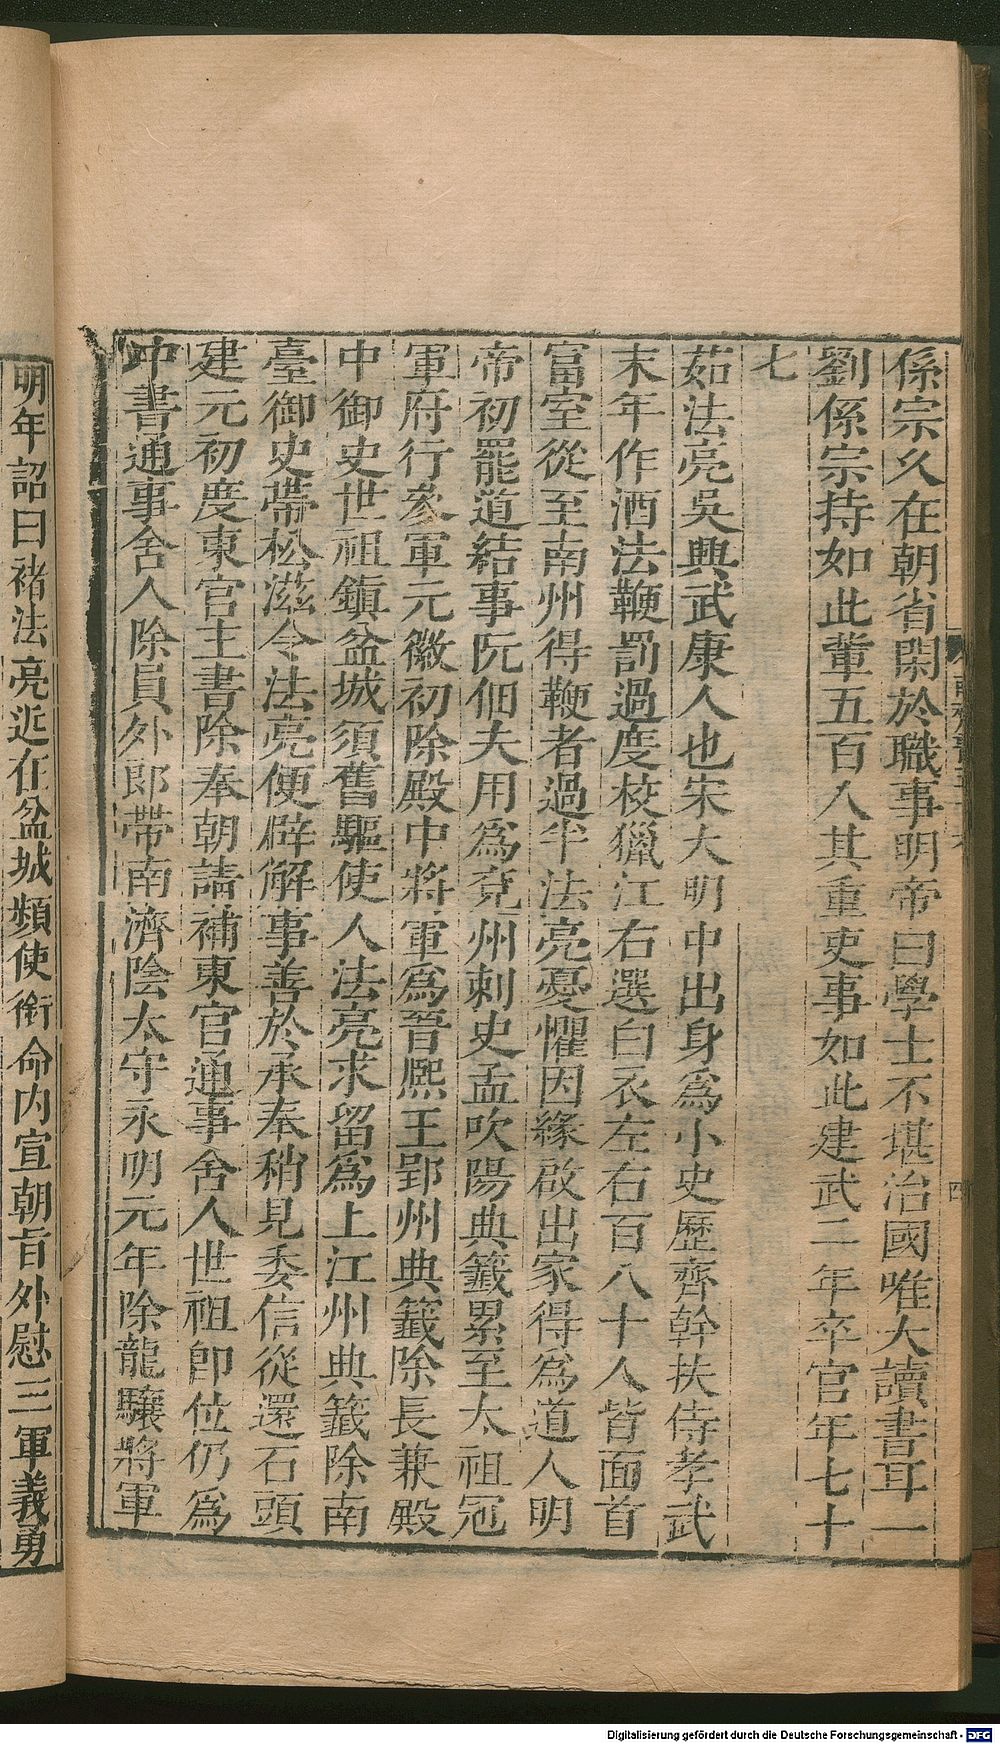 係宗久在朝省閑於職事明帝曰學士不堪治國唯大讀書耳一
劉係宗持如此輩五百人其重吏事如此建武二年卒官年七十
七
茹法亮吳興武康人也宋大明中出身爲小史歷齊幹扶侍孝武
末年作酒法鞭罰過度校獵江右選白衣左右百八十人皆面首
富室從至南州得鞭者過半法亮憂懼因緣啟出家得爲道人明
帝初罷道結事阮佃夫用爲兗州刺史孟吹陽典籤累至太祖冠
軍府行參軍元徽初除殿中將軍爲晉熈王郢州典籤除長兼殿
中御史世祖鎮盆城須舊驅使人法亮求留爲上江州典籤除南
臺御史帶松滋令法亮便辟解事善於承奉稍見委信從還石頭
建元初度東宫主書除奉朝請補東官通事舍人世祖卽位仍爲
中書通事舍人除員外郎帶南濟陰太守永明元年除龍驤將軍
明年詔曰褚法亮近在盆城頻使銜命內宣朝旨外慰三軍義勇
四
Digitalisierung gefördert durch die Deutsche Forschungsgemeinschaft - DFG